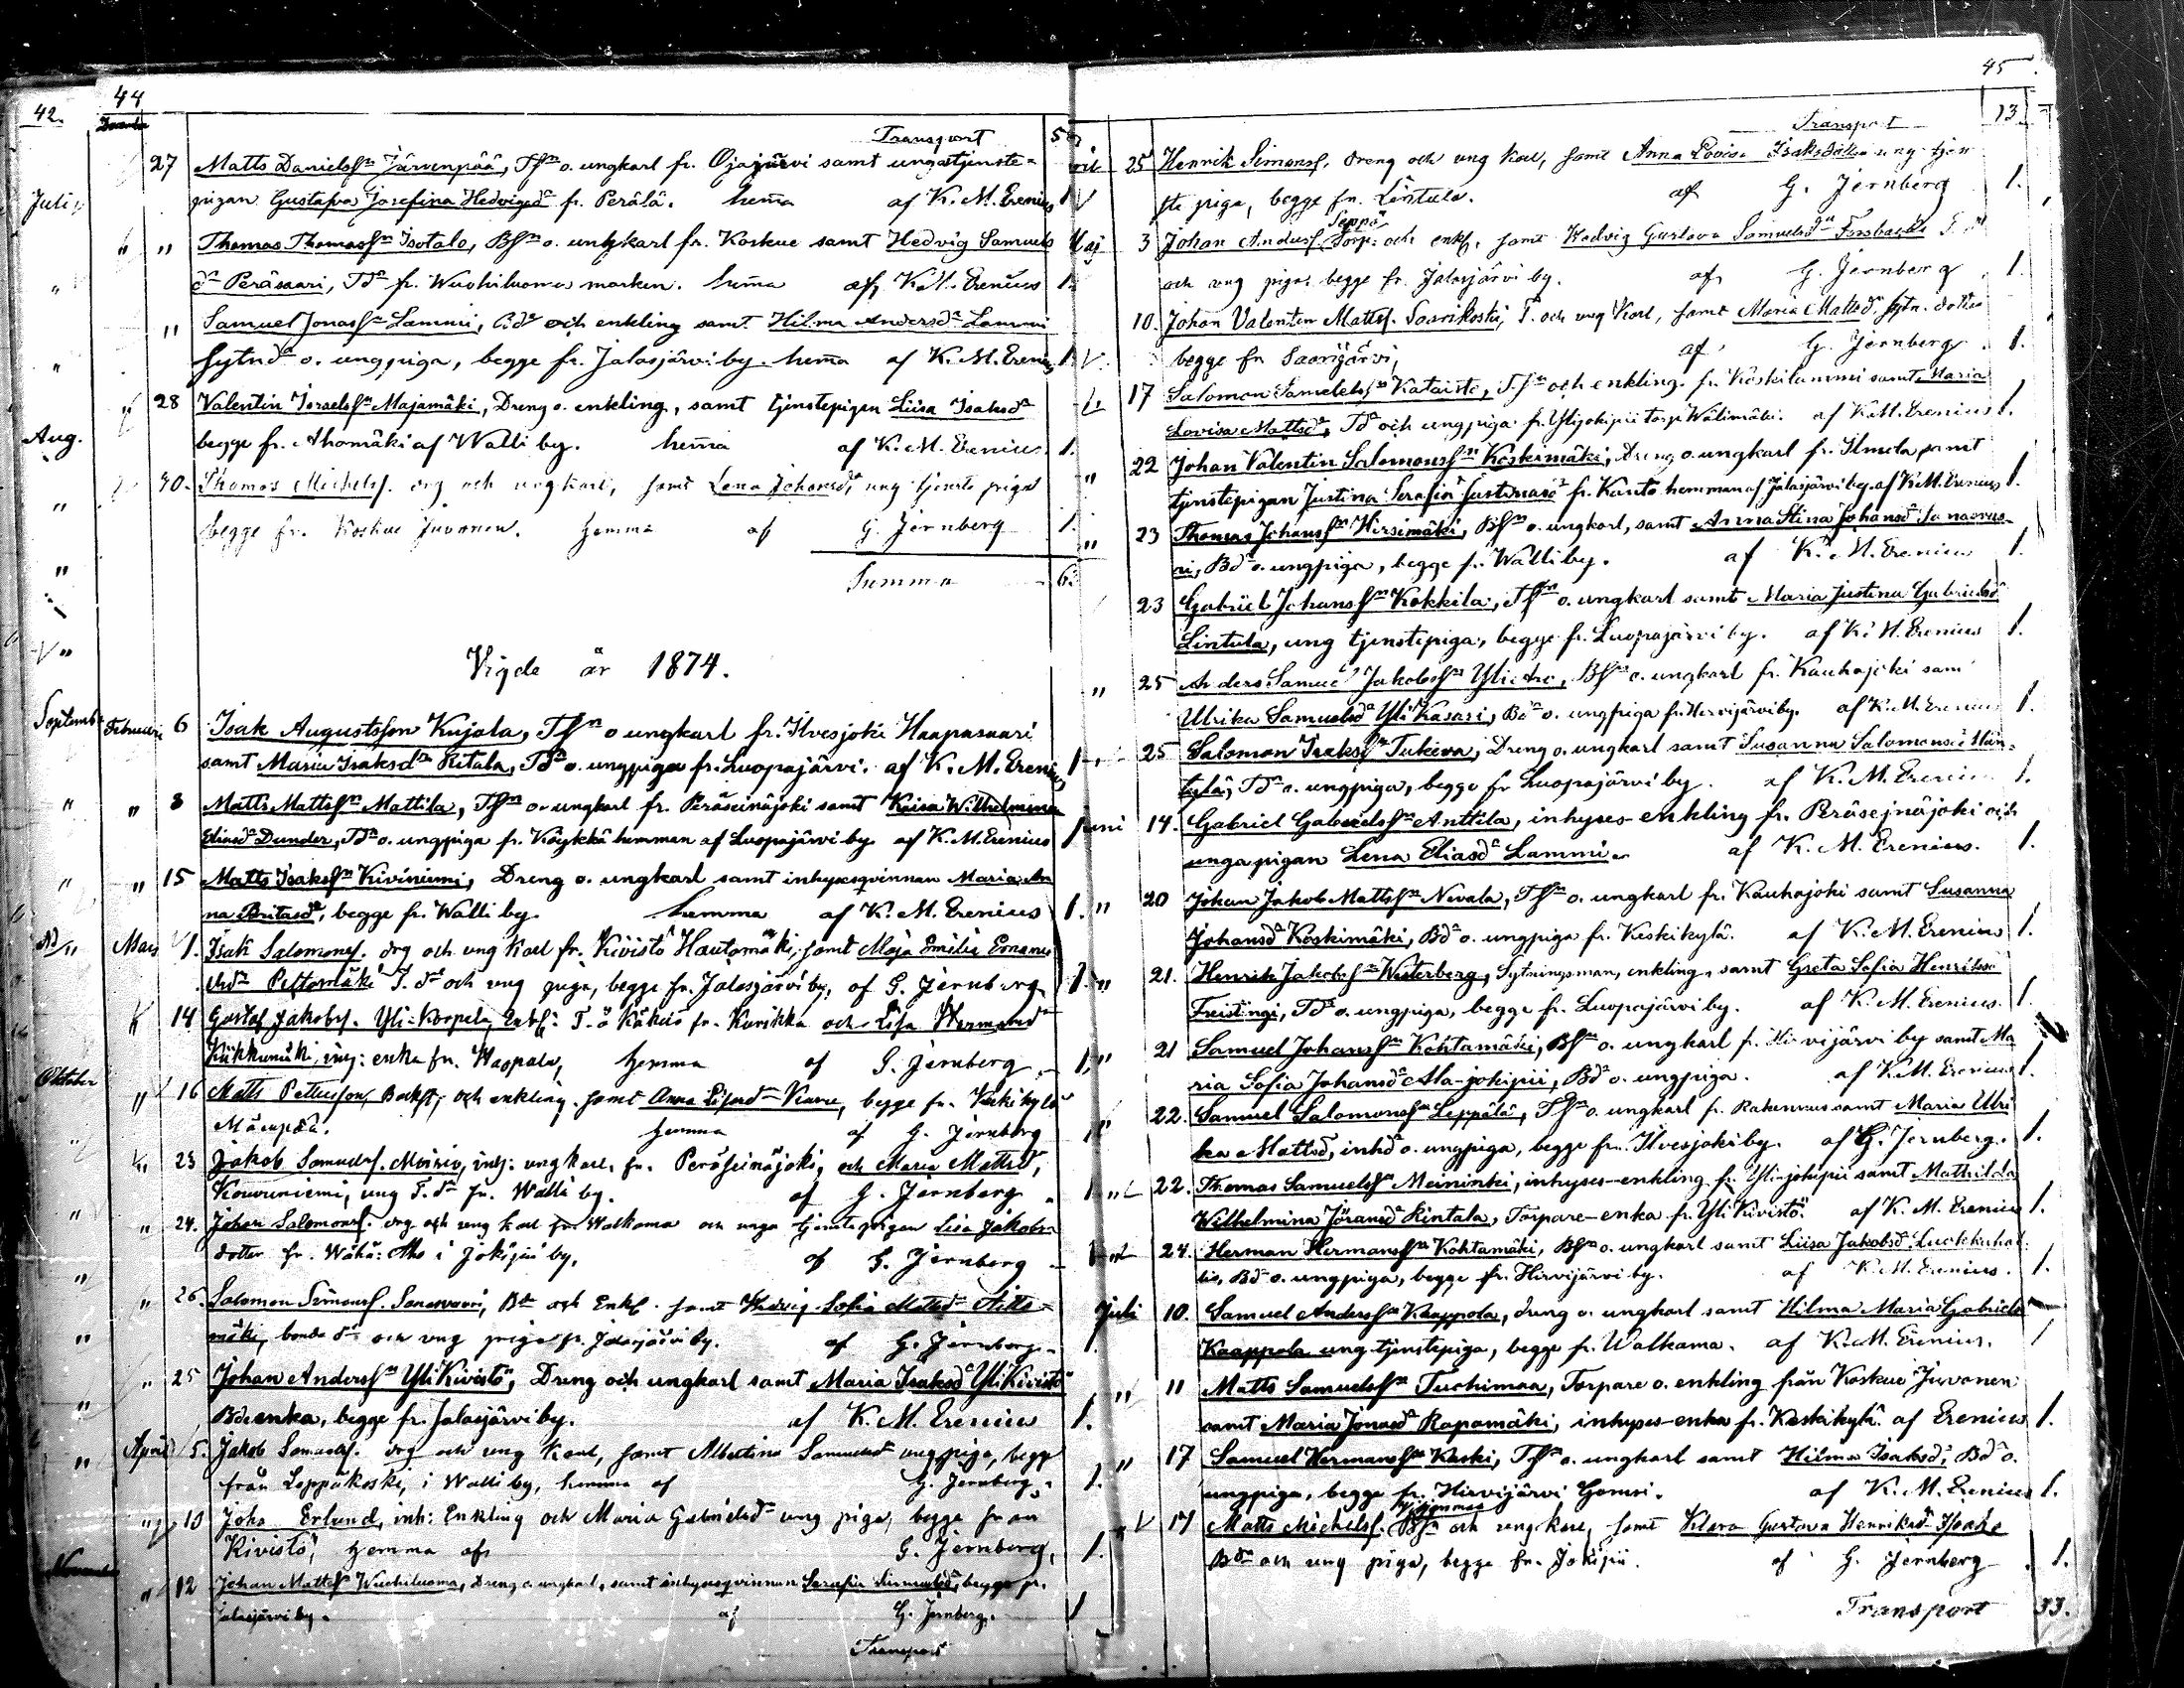 44
42.
December
Transport 5
27 Matts Danielsſn Järvenpää, Tſn o. ungkarl fr. Ojajärvi samt unga tjenste=
pigan Gustafva Josefina Hedvigsd. fr. Perälä. hem̄a af K. M. Erenius 1
" " Thomas Thomasſn Isotalo, Bſn o. ungkarl fr. Koskue samt Hedvig Samuels
dr Peräsaari, Tdr fr. Wuohiluoma marken. hem̄a af K. M. Erenius 1.
" Samuel Jonasſn Lammi, och enkling samt Hilma Andersdr Lammi
Sytndr o. ungpiga, begge fr. Jalasjärvi by. hem̄a af K. M. Erenius 1.
28 Valentin Israelsſn Majamäki, Dreng o. enkling, samt tjenstepigan Liisa Isaksdr
begge fr. Ahomäki af Walli by. hem̄a af K. M. Erenius. 1.
30. Thomas Michelsſ. drg och ungkarl, samt Lena Johansdr, ung tjenste piga
begge fr. Koskue Juvonen. hemma af G. Jernberg 1.
Summa 6.
Vigde år 1874.
Februari 6 Isak Augustsson Kujala, Tſn o ungkarl fr. Ilvesjoki Haapasaari
samt Maria Isaksdr Ritala, Tdr o. ungpiga fr. Luopajärvi. af K. M. Erenius 1
" 8 Matts Mattsſn Mattila, Tſn o. ungkarl fr. Peräseinäjoki samt Kaisa Wilhelmina
Eliasdr Dunder, Tdr o. ungpiga fr. Köykkä hemman af Luopajärvi by af K. M. Erenius
" 15 Matts Isaksſn Kiviniemi, Dreng o. ungkarl samt inhysesqvinnan Maria An
na Britasdr, begge fr. Walli by. hemma af K. M. Erenius 1.
Mars 1. Isak Salomonsſ. drg och ung Karl fr. Kivistö Hautamäki, samt Maja Emilia Emanu
elsdr Peltomäki T. dr och ung piga, begge fr. Jalasjärvi by, af G. Jernberg 1.
14 Gustaf Jakobsſ. Yli-Korpela Enkl: T. o Käkelä fr. Kurikka och Lisa Hermansdr
Kiikkumäki, inh: enka fr. Haapala, hemma af G. Jernberg 1.
" 16 Matts Pettersson, och enkling samt Anna Lisasdr, begge fr. Keskikylä
Mäenpää. hemma af G. Jernberg
" 23 Jakob Samuelsſ. Moisio, inh: ungkarl, fr. Peräseinäjoki, och Maria Mattsdr,
Kouvuniemi, ung T. dr fr. Walli by. af G. Jernberg
" 24. Johan Salomonsſ. drg och ung karl fr Walkama och unga tjenstepigan Lisa Jakobs=
dotter fr. Wähä-Aho i Jokipii by, af G. Jernberg
" 26. Salomon Simonsſ. Sanasvuori, Bdr och Enkl. samt Hedvig Sofia Mattsdr
mäki, bonde dr och ung piga fr. Jalasjärvi by. af G. Jernberg
" 25 Johan Andersſn Yli Kivistö, Dreng och ungkarl samt Maria Isaksdr Yli Kivistö
Bdeenka, begge fr. Jalasjärvi by. af K. M. Erenius 1.
April 5. Jakob Samuelsſ. drg och ung Karl, samt Albertina Samuelsdr ungpiga, begge
från Leppäkoski, i Walli by, hemma af G. Jernberg 1.
" 10 Joha Erlund, inh: Enkling och Maria Gabrielsdr ung piga, begge från
Kivistö, hemma af G. Jernberg, 1.
" 12 Johan Mattsſn Wuohiluoma, Dreng o. ungkarl, samt inhysesqvinnan Serafia Simonsdr, begge fr.
Jalasjärvi by. af G. Jernberg. 1
Transport
Juli
Aug.
September
Oktober
45
Transport 13
25 Henrik Simonsſ. dreng och ung karl, samt Anna Lovisa Isaksdotter ung tjen
ste piga, begge fr. Lintula. af G. Jernberg 1.
Seppä
Maj 3 Johan Andersſ. Torp: och enkl. samt Hedvig Gustava Samuelsdr Forsbacka
och ung piga begge fr. Jalasjärvi by. af G. Jernberg 1.
10. Johan Valentin Mattsſ. Saarikoski, T. och ung Karl, samt Maria Mattsdr sytn. dotter
begge fr Saarijärvi, af G. Jernberg 1.
17 Salomon Samuelsſn Kataisto, Tſn och enkling fr. Koskilammi samt Maria
Lovisa Mattsdr, Tdr och ungpiga fr. Ylijokipii torp Wälimäki. af K. M. Erenius 1.
" 22 Johan Valentin Salomonsſn Koskimäki, Dreng o. ungkarl fr. Ilmola samt
tjenstepigan Justina Serafia Justinasdr fr. Kauto hemman af Jalasjärvi by. af K. M. Erenius 1.
" 23 Thomas Johansſn Hirsimäki, Bſn o. ungkarl, samt Anna Stina Johansdr Sanasvuo-
ri, Bdr o. ungpiga, begge fr. Walli by. af K. M. Erenius 1.
23 Gabriel Johansſn Kokkila, Tſn o. ungkarl samt Maria Justina Gabrielsdr
Lintula, ung tjenstepiga, begge fr. Luopajärvi by. af K. M. Erenius 1.
" 25 Anders Samuel Jakobsſn Yli-Aro, Bſn o. ungkarl fr. Kauhajoki samt
Ulrika Samuelsdr Yli Kasari, Bdr o. ungpiga fr. Hirvijärvi by. af K. M. Erenius 1.
25 Salomon Isaksſn Tukeva, Dreng o. ungkarl samt Susanna Salomonsdr Män-
tylä, Tdr o. ungpiga, begge fr Luopajärvi by. af K. M. Erenius 1.
Juni 14. Gabriel Gabrielsſn Anttila, inhyses-enkling fr. Peräseinäjoki och
unga pigan Lena Eliasdr Lammi af K. M. Erenius. 1.
" 20 Johan Jakob Mattsſn Nevala, Tſn o. ungkarl fr. Kauhajoki samt Susanna
Johansdr Koskimäki, Bdr o. ungpiga fr. Keskikylä. af K. M. Erenius 1.
" 21. Henrik Jakobsſn Westerberg, Sytningsman, enkling, samt Greta Sofia Henriksdr
Freistingi, Tdr o. ungpiga, begge fr. Luopajärvi by. af K. M. Erenius. 1.
" 21 Samuel Johansſn Kohtamäki, Bſn o. ungkarl fr. Hirvijärvi by samt Ma
ria Sofia Johansdr Ala-jokipii, Bdr o. ungpiga. af K. M. Erenius 1.
22. Samuel Salomonsſn Leppälä, Tſn o. ungkarl fr. Rakennus samt Maria Ulri
ka Mattsdr, inhdr o. ungpiga, begge fr. Ilvesjoki by. af G. Jernberg. 1.
" 22. Thomas Samuelsſn Meininki, inhyses-enkling fr. Yli-jokipii samt Mathilda
Wilhelmina Jöransdr Rintala, Torpare-enka fr. Yli Kivistö. af K. M. Erenius 1.
24. Herman Hermansſn Kohtamäki, Bſn o. ungkarl samt Liisa Jakobsdr
Bdr o. ungpiga, begge fr. Hirvijärvi by. af K. M. Erenius. 1.
Juli 10. Samuel Andersſn Kaappola, dreng o. ungkarl samt Hilma Maria Gabrielsdr
Kaappola ung tjenstepiga, begge fr. Walkama. af K. M. Erenius. 1
" 11 Matts Samuelsſn Tuohimaa, Torpare o. enkling från Koskue Juvonen
samt Maria Jonasdr Rapamäki, inhyses-enka fr. Keskikylä. af Erenius 1.
" 17 Samuel Hermansſn Keski, Tſn o. ungkarl samt Hilma Isaksdr, Bdr o.
ungpiga, begge fr. Hirvijärvi Gomsi. af K. M. Erenius 1.
17 Matts Michelsſ. Bſn och ungkarl, samt Klara Gustava Henriksdr Isoaho
Bdr och ung piga, begge fr. Jokipii. af G. Jernberg 1.
Transport 33.